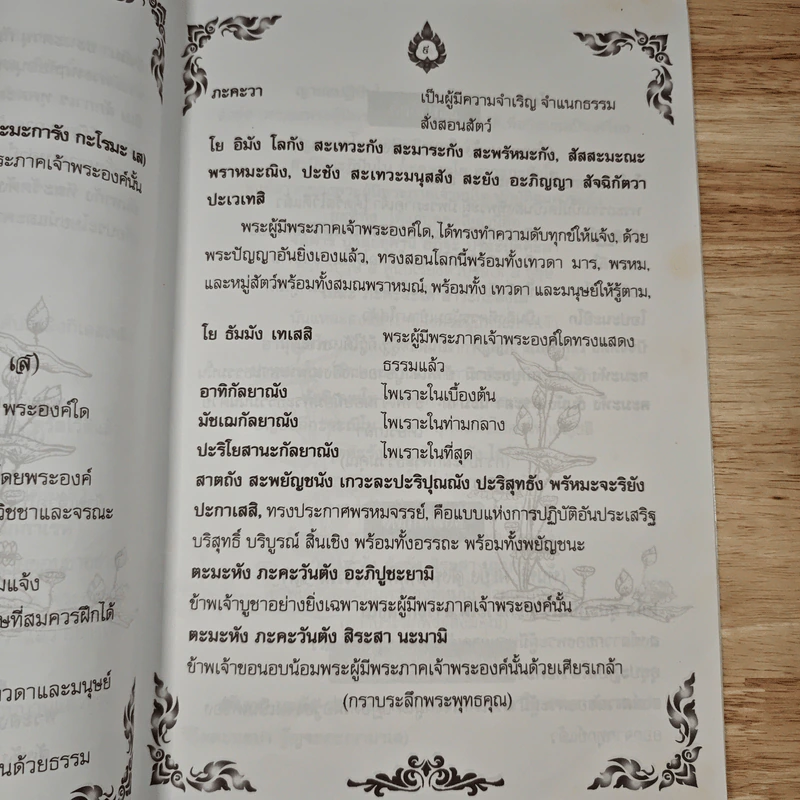 ะมะการัง กะโรมะ เส)
ระภาคเจ้าพระองค์นั้น
เส)
พระองค์ใด
ดยพระองค์
วิชชาและจรณะ
มแจ้ง
ษที่สมควรฝึกได้
ทวดาและมนุษย์
นด้วยธรรม
ภะคะวา เป็นผู้มีความจำเริญ จำแนกธรรม
สั่งสอนสัตว์
โย อิมัง โลกัง สะเทวะกัง สะมาระกัง สะพรัหมะกัง, สัสสะมะณะ
พราหมะณิง, ปะชัง สะเทวะมะนุสสัง สะยัง อะภิญญา สัจฉิกัตวา
ปะเวเทสิ
พระผู้มีพระภาคเจ้าพระองค์ใด, ได้ทรงทำความดับทุกข์ให้แจ้ง, ด้วย
พระปัญญาอันยิ่งเองแล้ว, ทรงสอนโลกนี้พร้อมทั้งเทวดา มาร, พรหม,
และหมู่สัตว์พร้อมทั้งสมณพราหมณ์, พร้อมทั้ง เทวดา และมนุษย์ให้รู้ตาม,
โย ธัมมัง เทเสสิ พระผู้มีพระภาคเจ้าพระองค์ใดทรงแสดง
ธรรมแล้ว
อาทิกัลยาณัง ไพเราะในเบื้องต้น
มัชเฌกัลยาณัง ไพเราะในท่ามกลาง
ปะริโยสานะกัลยาณัง ไพเราะในที่สุด
สาตถัง สะพยัญชนัง เกวะละปะริปุณณัง ปะริสุทธัง พรัหมะจะริยัง
ปะกาเสสิ, ทรงประกาศพรหมจรรย์, คือแบบแห่งการปฏิบัติอันประเสริฐ
บริสุทธิ์ บริบูรณ์ สิ้นเชิง พร้อมทั้งอรรถะ พร้อมทั้งพยัญชนะ
ตะมะหัง ภะคะวันตัง อะภิปูชะยามิ
ข้าพเจ้าบูชาอย่างยิ่งเฉพาะพระผู้มีพระภาคเจ้าพระองค์นั้น
ตะมะหัง ภะคะวันตัง สิระสา นะมามิ
ข้าพเจ้าขอนอบน้อมพระผู้มีพระภาคเจ้าพระองค์นั้นด้วยเศียรเกล้า
(กราบระลึกพระพุทธคุณ)